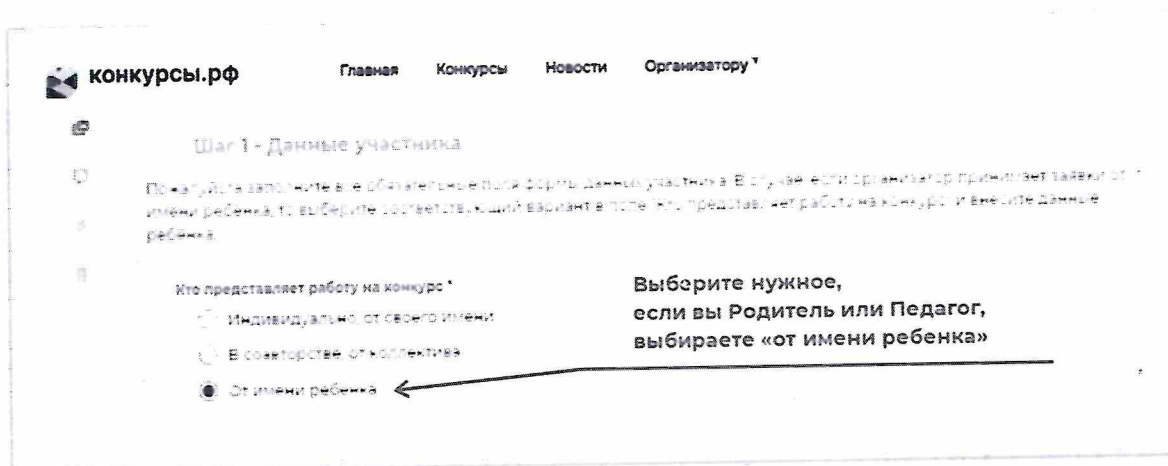 конкурсы.рф
Главная Конкурсы Новости Организатору
Шаг 1 - Данные участника
Пожалуйста заполните все обязательные поля формы данных участника. В случае, если организатор принимает заявки от
имени ребенка, то выберите соответствующий вариант в поле "Кто представляет работу на конкурс" и внесите данные
ребёнка.
Кто представляет работу на конкурс *
Индивидуально, от своего имени
В соавторстве, от коллектива
От имени ребенка
Выберите нужное,
если вы Родитель или Педагог,
выбираете «от имени ребенка»